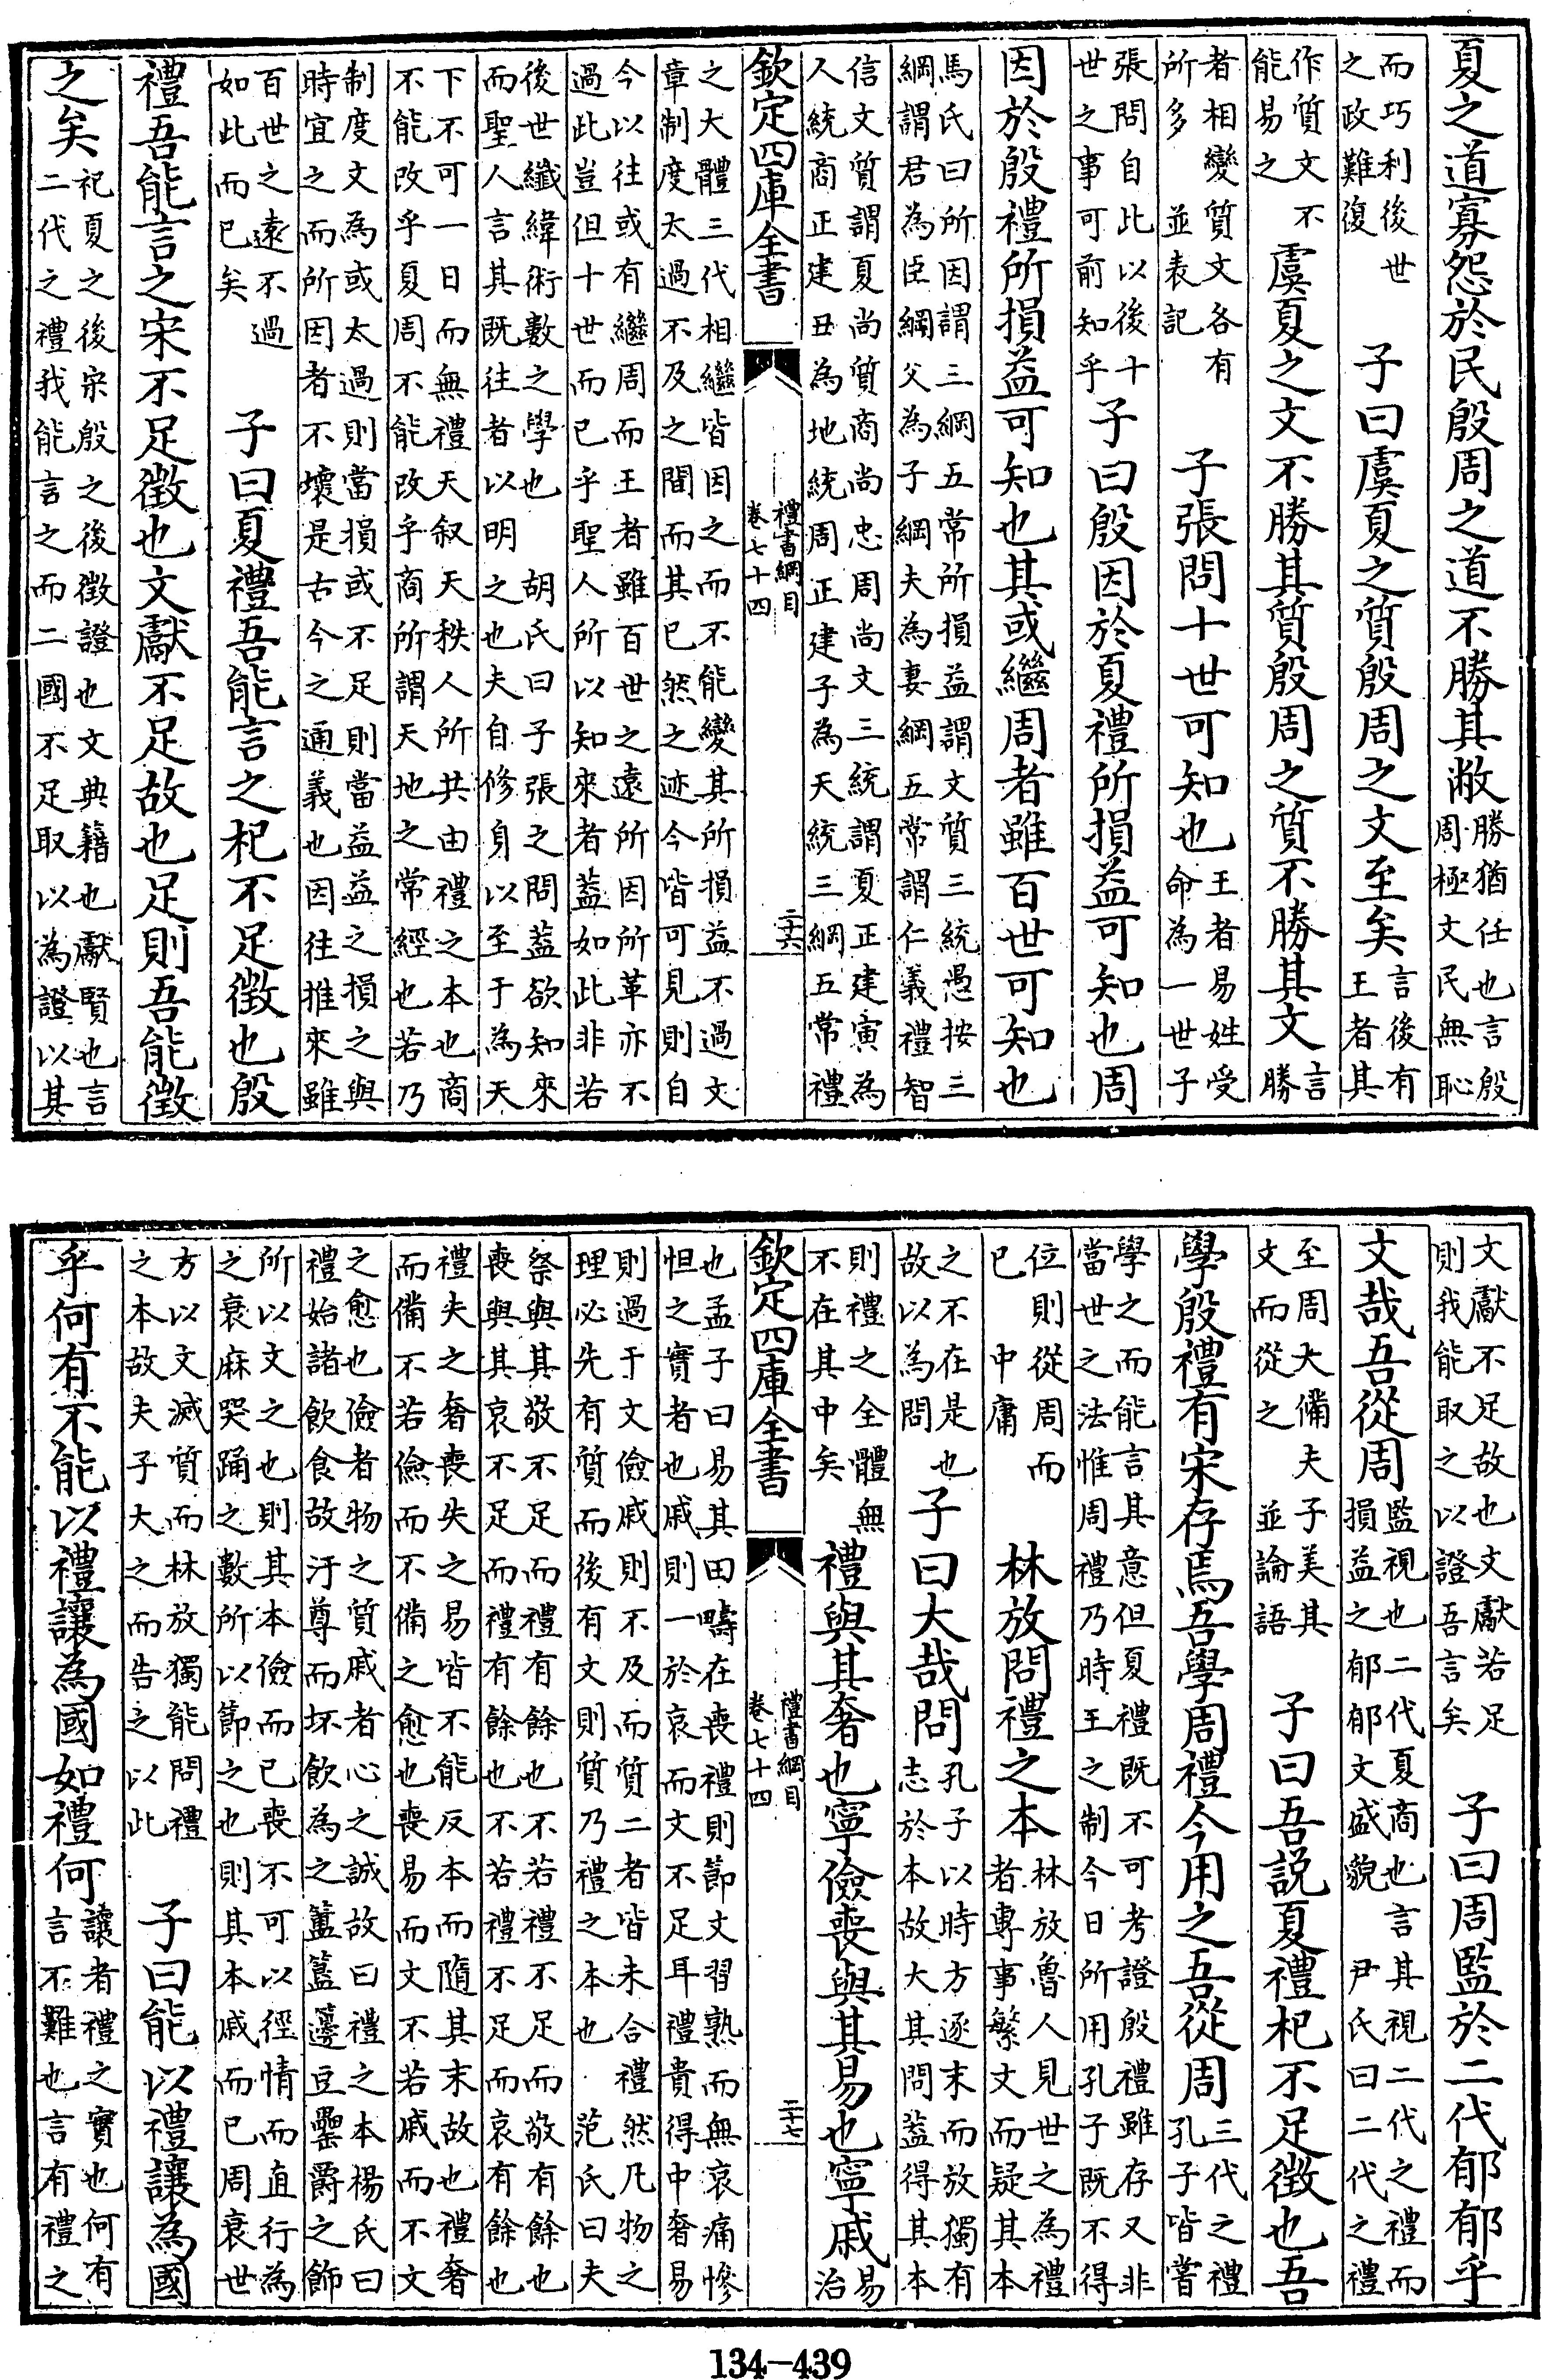 夏之道寡怨於民殷周之道不勝其敝勝猶任也言殷周極文民無恥
而巧利後世之政難復 子曰虞夏之質殷周之文至矣言後有王者其
作質文不能易之 虞夏之文不勝其質殷周之質不勝其文言勝
者相變質文各有所多 並表記 子張問十世可知也王者易姓受命為一世子
張問自此以後十世之事可前知乎 子曰殷因於夏禮所損益可知也周
因於殷禮所損益可知也其或繼周者雖百世可知也
馬氏曰所因謂三綱五常所損益謂文質三統愚按三
綱謂君為臣綱父為子綱夫為妻綱五常謂仁義禮智
信文質謂夏尚質商尚忠周尚文三統謂夏正建寅為
人統商正建丑為地統周正建子為天統三綱五常禮
欽定四庫全書 禮書綱目 卷七十四 二十六
之大體三代相繼皆因之而不能變其所損益不過文
章制度太過不及之間而其已然之迹今皆可見則自
今以往或有繼周而王者雖百世之遠所因所革亦不
過此豈但十世而已乎聖人所以知來者蓋如此非若
後世纖緯術數之學也 胡氏曰子張之問蓋欲知來
而聖人言其既往者以明之也夫自修身以至于為天
下不可一日而無禮天叙天秩人所共由禮之本也商
不能改乎夏周不能改乎商所謂天地之常經也若乃
制度文為或太過則當損或不足則當益益之損之與
時宜之而所因者不壞是古今之通義也因往推來雖
百世之遠不過如此而已矣 子曰夏禮吾能言之杞不足徵也殷
禮吾能言之宋不足徵也文獻不足故也足則吾能徵
之矣杞夏之後宋殷之後徵證也文典籍也獻賢也言二代之禮我能言之而二國不足取以為證以其
文獻不足故也文獻若足則我能取之以證吾言矣 子曰周監於二代郁郁乎
文哉吾從周監視也二代夏商也言其視二代之禮而損益之郁郁文盛貌 尹氏曰二代之禮
至周大備夫子美其文而從之 並論語 子曰吾説夏禮杞不足徵也吾
學殷禮有宋存焉吾學周禮今用之吾從周三代之禮孔子皆嘗
學之而能言其意但夏禮既不可考證殷禮雖存又非
當世之法惟周禮乃時王之制今日所用孔子既不得
位則從周而已 中庸 林放問禮之本林放魯人見世之為禮者專事繁文而疑其本
之不在是也故以為問 子曰大哉問孔子以時方逐末而放獨有志於本故大其問蓋得其本
則禮之全體無不在其中矣 禮與其奢也寧儉喪與其易也寧戚易治
欽定四庫全書 禮書綱目 卷七十四 二十七
也孟子曰易其田疇在喪禮則節文習熟而無哀痛慘
怛之實者也戚則一於哀而文不足耳禮貴得中奢易
則過于文儉戚則不及而質二者皆未合禮然凡物之
理必先有質而後有文則質乃禮之本也 范氏曰夫
祭與其敬不足而禮有餘也不若禮不足而敬有餘也
喪與其哀不足而禮有餘也不若禮不足而哀有餘也
禮失之奢喪失之易皆不能反本而隨其末故也禮奢
而備不若儉而不備之愈也喪易而文不若戚而不文
之愈也儉者物之質戚者心之誠故曰禮之本楊氏曰
禮始諸飲食故汙尊而坏飲為之簠簋籩豆罍爵之飾
所以文之也則其本儉而已喪不可以徑情而直行為
之衰麻哭踊之數所以節之也則其本戚而已周衰世
方以文滅質而林放獨能問禮之本故夫子大之而告之以此 子曰能以禮讓為國
乎何有不能以禮讓為國如禮何讓者禮之實也何有言不難也言有禮之
134-439